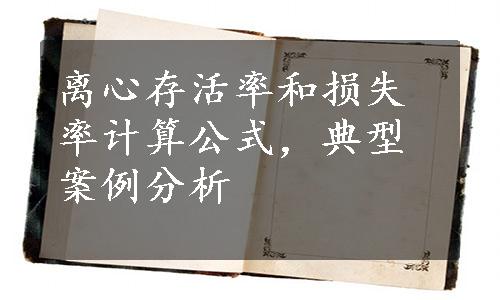 离心存活率和损失
率计算公式，典型
案例分析